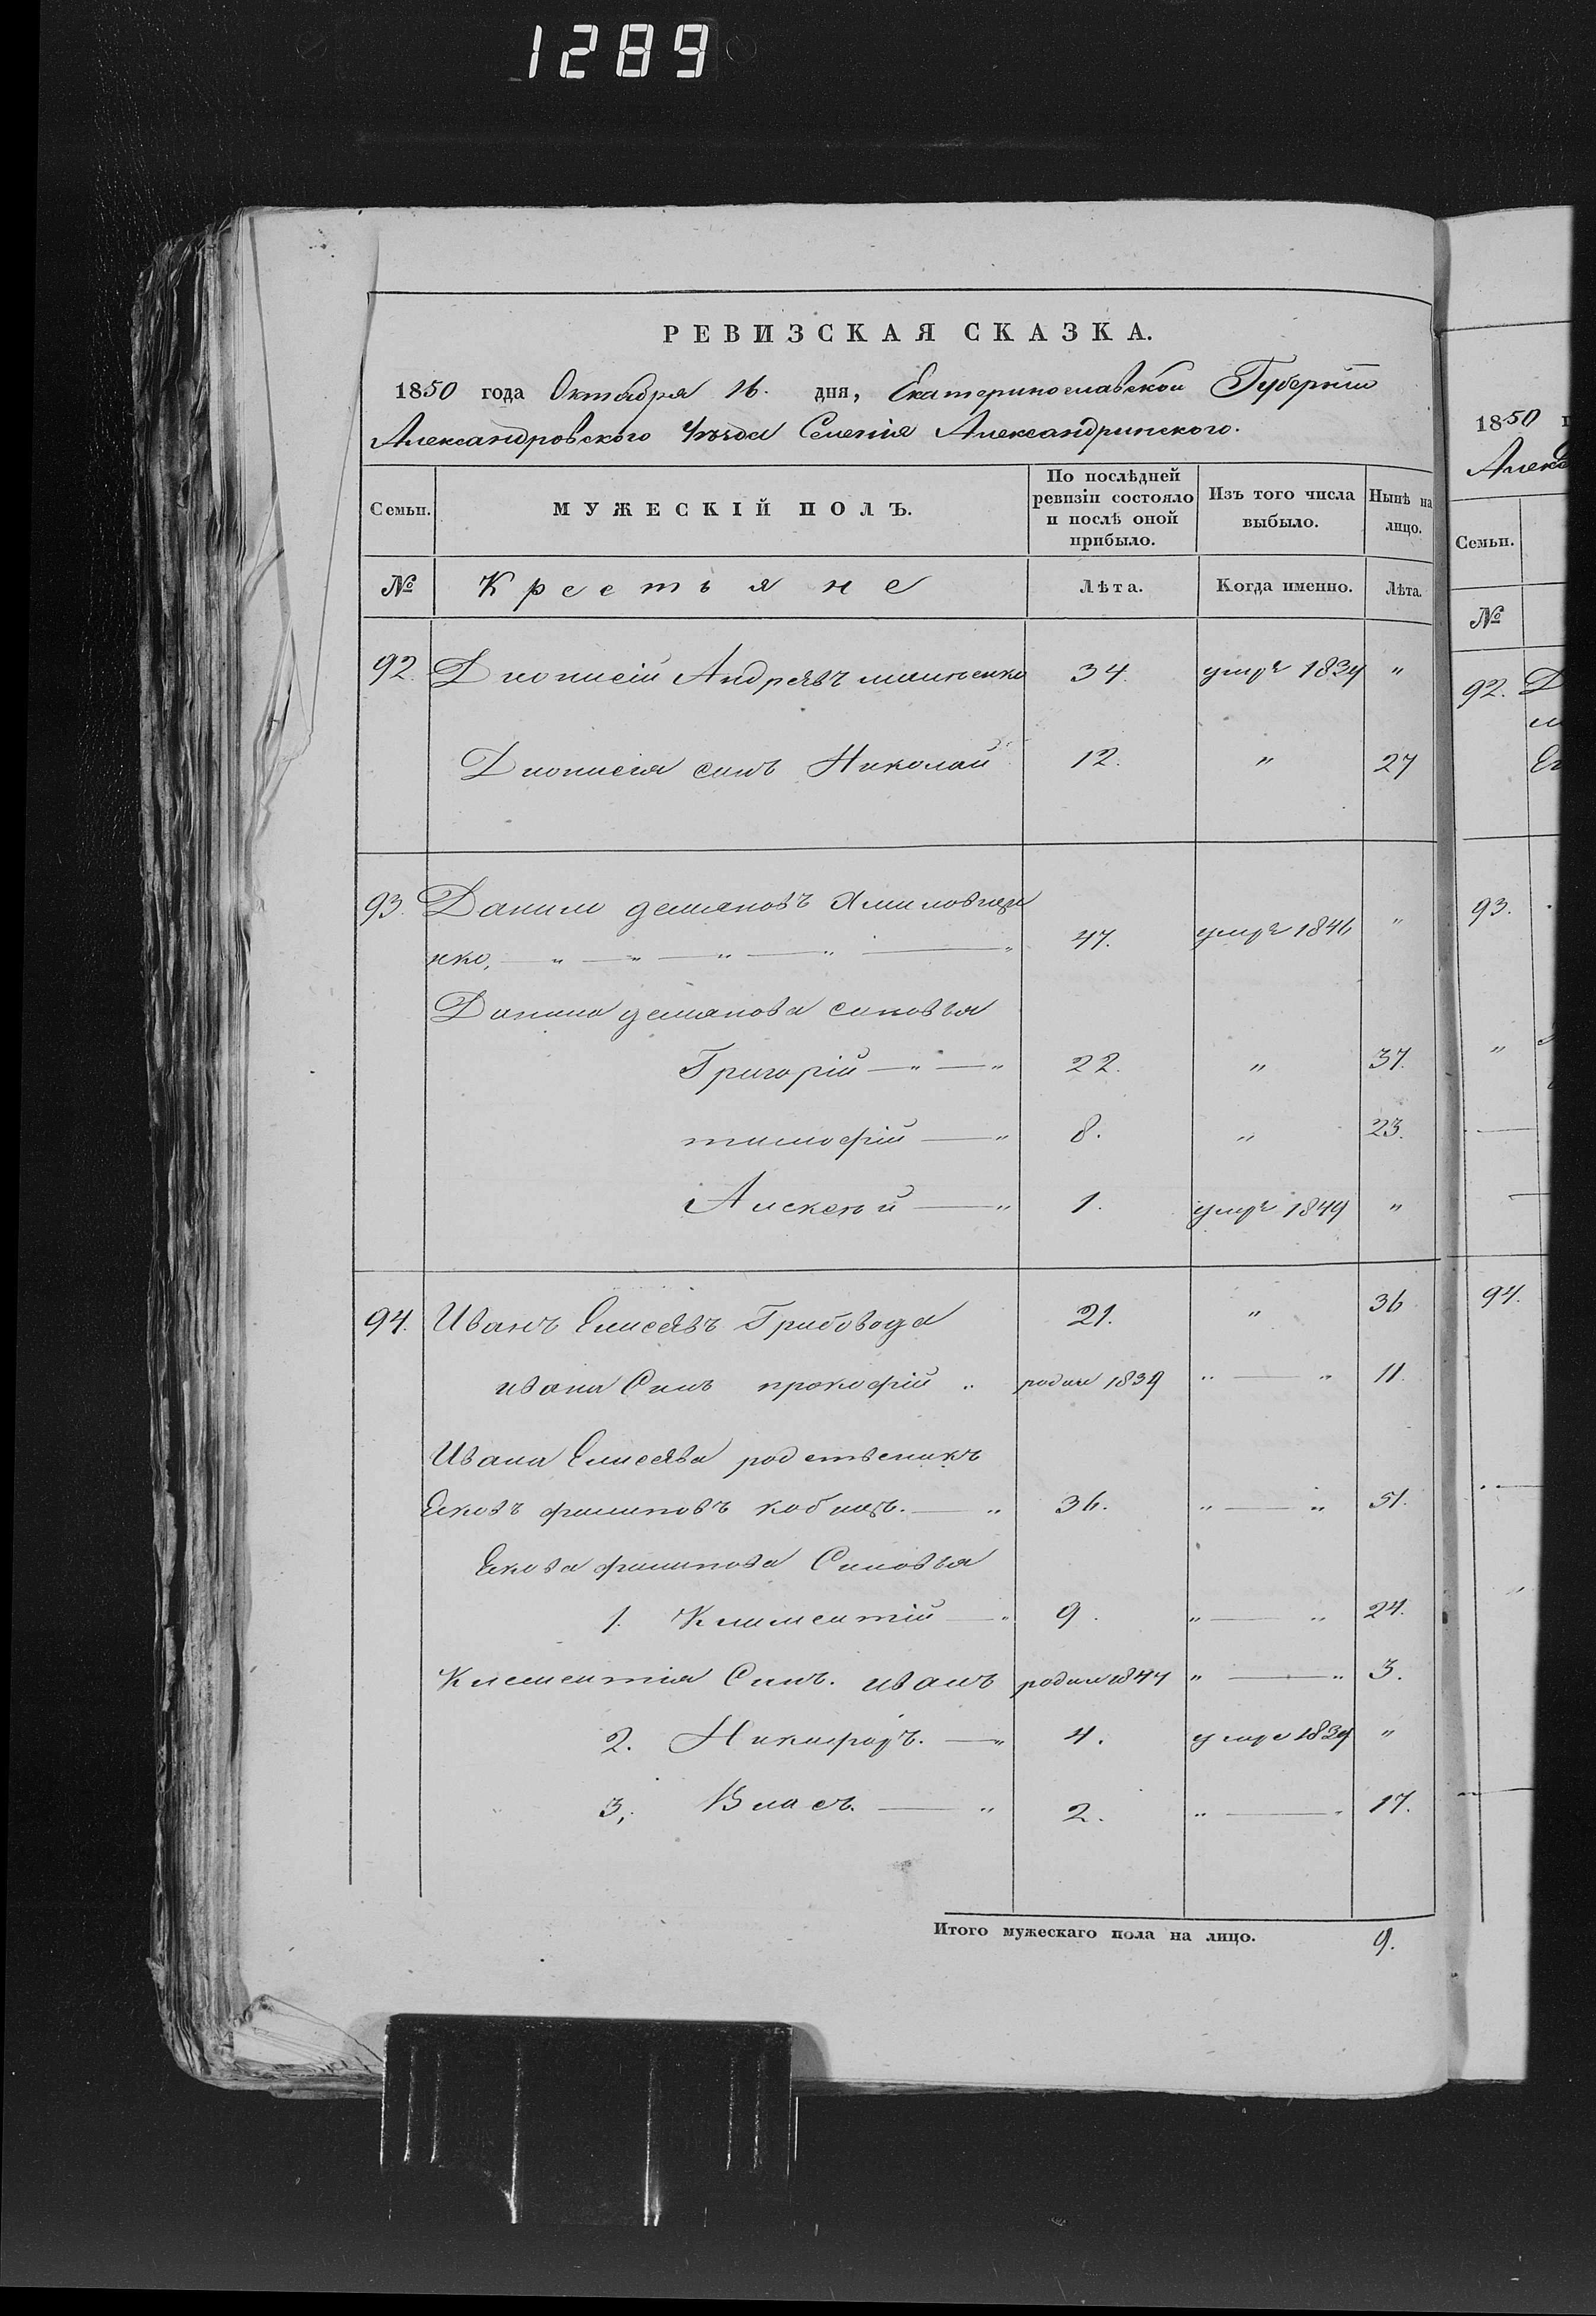 1289
РЕВИЗСКАЯ СКАЗКА.
1850 года Октября 16. дня, Екатеринославской Губерніи
Александровского Уѣзда Селенія Александринского.
Семьи. МУЖЕСКІЙ ПОЛЪ. По послѣдней ревизіи состояло и послѣ оной прибыло. Изъ того числа выбыло. Нынѣ на лицо.
№ Крестьяне Лѣта. Когда именно. Лѣта.
92. Дионисій Андреявъ 34. умре 1839 "
Дионисія синъ Николай 12. " 27
93. Данило демяновъ 47. умре 1846 "
нко, — " — " — " — " — "
Данила демянова синовья
Григорій — " — " 22. " 37.
тимофій — " 8. " 23.
Алексѣй — " 1. умре 1849 "
94. Иванъ Елисеявъ Грибовода 21. " 36
ивана Синъ прокофій " родил 1839 " — " 11.
Ивана Елисеява родственикъ
Ековъ филиповъ кобецъ. — " 36. " — " 51.
Екова филипова Синовья
1. Климентій — " 9. " — " 24.
Климентія Синъ. иванъ родил 1847 " — " 3.
2. Никифоръ. — " 4. умре 1839 "
3, Власъ. — " 2. " — " 17.
Итого мужескаго пола на лицо. 9.
1850
Алекс
Семьи.
№
92. Д
93.
94.